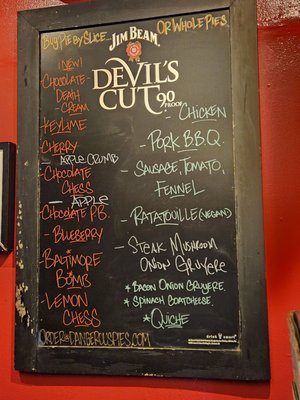 Buy Pie by Slice... Or Whole Pies
JIM BEAM
DEVIL'S
CUT 90
PROOF
!New!
Chocolate
Death
- Cream
Key Lime
Cherry
- Apple Crumb
- Chocolate
Chess
- Apple
- Chocolate P.B.
- Blueberry
- Baltimore
Bomb
- Lemon
Chess
Order@DangerousPies.com
- Chicken
- Pork B.B.Q.
- Sausage, Tomato,
Fennel
- Ratatouille (Vegan)
- Steak Mushroom
Onion Gruyere
* Bacon Onion Gruyere.
* Spinach Goatcheese.
* Quiche
drink smart